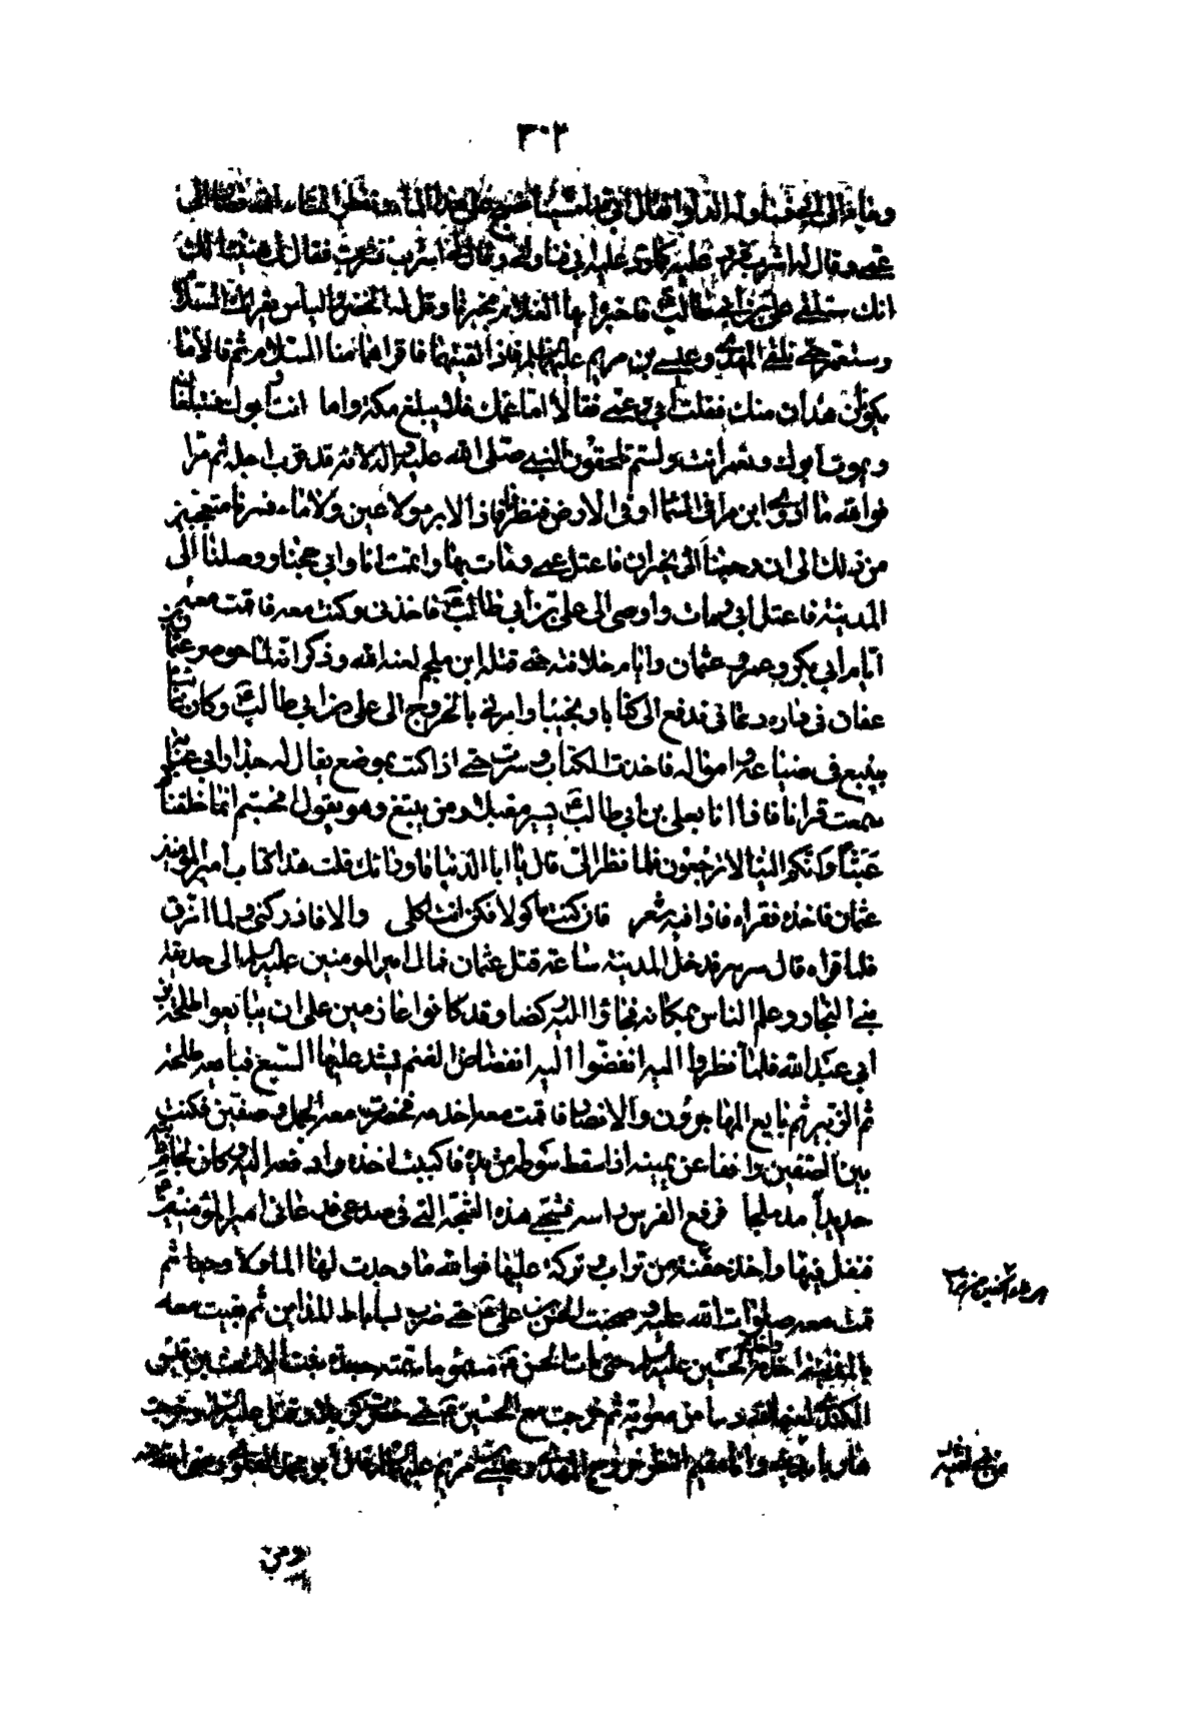 ٣٠٢
عمي وقال له اشرب
انك ستلقى علي بن أبي طالب فاخبره
وستعمر حتى تلقى المهدي وعيسى بن مريم عليهما فاذا لقيتهما فاقراهما منا السلام ثم قالا ما
يكونان هذان منك فقلت أبي وعمي فقالا اما عمك فلا يبلغ مكة واما انت وابوك فتبلغان
ويموت ابوك وتعمر انت ولستم تلحقون النبي صلى الله عليه واله لانه قد قرب اجله ثم مرا
فوالله ما ادري اين مرا في السماء او في الارض فنظرنا فاذا لا بئر ولا عين ولا ماء فسرنا متعجبين
من ذلك الى ان رجعنا الى نجران فاعتل عمي ومات بها واتممت انا وابي حجنا ووصلنا الى
المدينة فاعتل ابي ومات واوصى الى علي بن أبي طالب فاخذني وكنت معه فاقمت معه
ايام ابي بكر وعمر وعثمان وايام خلافته حتى قتله ابن ملجم لعنه الله وذكر انه لما حوصر عثمان بن
عفان في داره دعاني فدفع الي كتابا ونجيبا وامرني بالخروج الى علي بن ابي طالب وكان غائبا
بينبع في ضياعه وامواله فاخذت الكتاب وسرت حتى اذا كنت بموضع يقال له جدار ابي عباية
سمعت قرانا فاذا انا بعلي بن ابي طالب يسير مقبلا من ينبع وهو يقول افحسبتم انما خلقناكم
عبثا وانكم الينا لا ترجعون فلما نظر الي قال يا ابا الدنيا ما وراءك قلت هذا كتاب امير المومنين
عثمان فاخذه فقراه فاذا فيه شعر فان كنت ماكولا فكن انت اكلي والا فادركني ولما امزق
فلما قراه قال سر سر فدخل المدينة ساعة قتل عثمان فمال امير المومنين عليه السلام الى حديقة
بني النجار وعلم الناس بمكانه فجاؤا اليه ركضا وقد كانوا عازمين على ان يبايعوا طلحة بن
ابي عبدالله فلما نظروا اليه انفضوا اليه انفضاض الغنم يشد عليها السبع فبايعه طلحة
ثم الزبير ثم بايع المهاجرون والانصار فاقمت معه اخدمه فحضرت معه الجمل وصفين فكنت
بين الصفين واقفا عن يمينه اذا سقط سوطه من يده فاكببت اخذه وادفعه اليه وكان لجام دابته
حديدا مدملجا فرفع الفرس راسه فشجني هذه الشجة التي في صدغي فدعاني امير المؤمنين
فتفل فيها واخذ حفنة من تراب فتركه عليها فوالله ما وجدت لها الما ولا وجعا ثم
قمت معه صلوات الله عليه وصحبت الحسن بن علي حتى ضرب بساباط المدائن ثم بقيت معه
بالمدينة اخدمه واخدم الحسين عليه السلام حتى مات الحسن مسموما سمته جعدة بنت الاشعث بن قيس
الكندي لعنها الله دسا من معوية ثم خرجت مع الحسين حتى حضرت كربلا وقتل عليه السلام وخرجت
هاربا
ومن